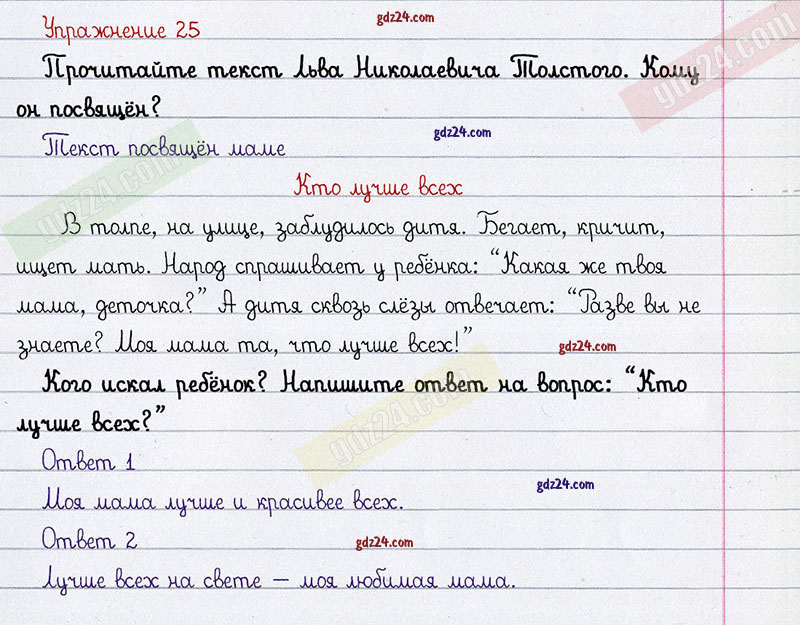 gdz24.com
Упражнение 25
gdz24.com
Прочитайте текст Льва Николаевича Толстого. Кому
он посвящён?
gdz24.com
Текст посвящён маме
gdz24.com
Кто лучше всех
В толпе, на улице, заблудилось дитя. Бегает, кричит,
ищет мать. Народ спрашивает у ребёнка: “Какая же твоя
мама, деточка?” А дитя сквозь слёзы отвечает: “Разве вы не
знаете? Моя мама та, что лучше всех!”
gdz24.com
Кого искал ребёнок? Напишите ответ на вопрос: “Кто
лучше всех?”
gdz24.com
Ответ 1
gdz24.com
Моя мама лучше и красивее всех.
Ответ 2
gdz24.com
Лучше всех на свете – моя любимая мама.